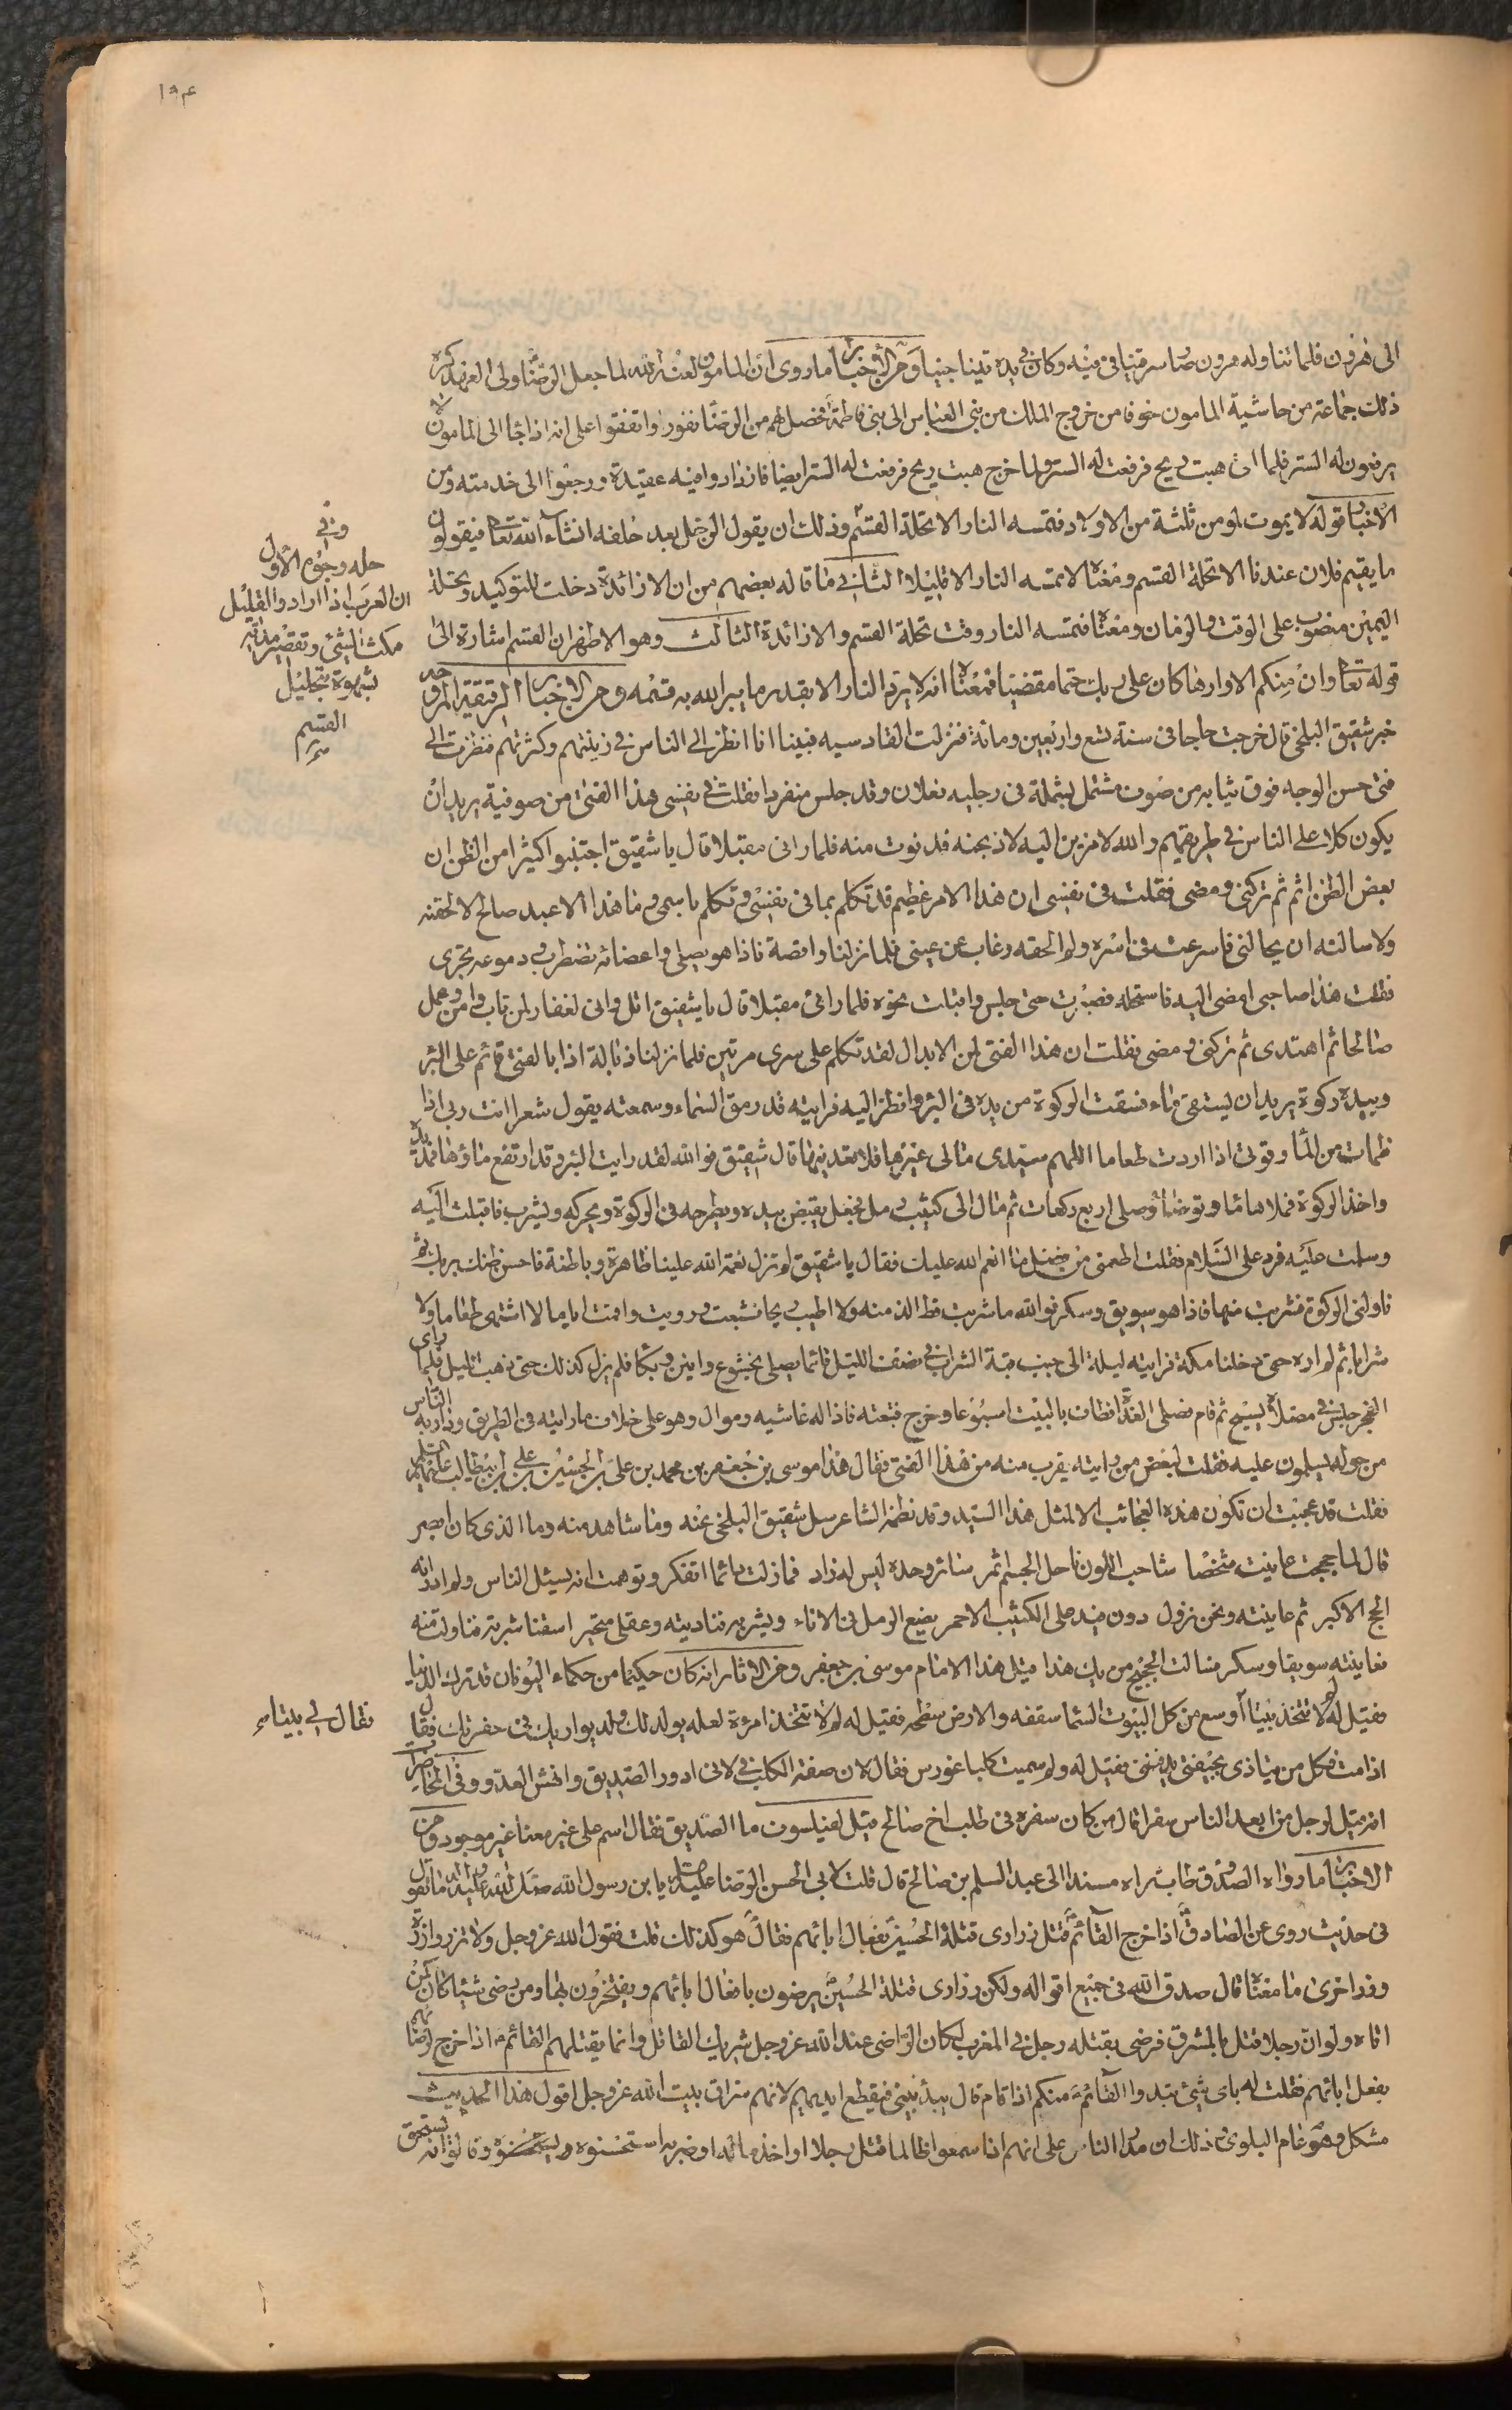 ١٩٤
الى هرون فلما تناوله هرون صار سرقينا في فيه وكان في يده تينا جنيا ومن الأخبار ما روى ان المامون لعنه الله لما جعل الرضا ولي العهد كره
ذلك جماعة من حاشية المامون خوفا من خروج الملك من بني العباس الى بني فاطمة فحصل لهم من الرضا نفور واتفقوا على انه اذا جا الى المامون لا
يرفعون له الستر فلما اتى هبت ريح فرفعت له الستر ولما خرج هبت ريح فرفعت له الستر ايضا فازدادوا فيه عقيدة ورجعوا الى خدمته ومن
الاخبار قوله لا يموت لمومن ثلثة من الاولاد فتمسه النار الا تحلة القسم وذلك ان يقول الرجل بعد حلفه انشاء الله تعا فيقولون
ما يقيم فلان عندنا الا تحلة القسم ومعناه لا تمسه النار الا قليلا الثاني ما قاله بعضهم من ان الا زائدة دخلت للتوكيد وتحلة
اليمين منصوب على الوقت والزمان ومعناه فتمسه النار وقت تحلة القسم والا زائدة الثالث وهو الاظهر ان القسم اشارة الى
قوله تعا وان منكم الا واردها كان على ربك حتما مقضيا فمعناه انه لا يرد النار الا بقدر ما يبر الله به قسمه ومن الاخبار الرقيقة المروحه
خبر شقيق البلخي قال خرجت حاجا في سنة تسع واربعين ومائة فنزلت القادسيه فبينا انا انظر الى الناس في زينتهم وكثرتهم فنظرت الى
فتى حسن الوجه فوق ثيابه من صوف مشتمل بشملة في رجليه نعلان وقد جلس منفردا فقلت في نفسي هذا الفتى من صوفية يريد ان
يكون كلا على الناس في طريقهم والله لامزين اليه لاذبحنه فدنوت منه فلما راني مقبلا قال يا شقيق اجتنبوا كثيرا من الظن ان
بعض الظن اثم ثم تركني ومضى فقلت في نفسي ان هذا الامر عظيم قد تكلم بما في نفسي وتكلم باسمي وما هذا الا عبد صالح لالحقنه
ولاسالنه ان يحالني فاسرعت في اثره ولم الحقه وغاب عن عيني فلما نزلنا واقصة فاذا هو يصلي واعضائه تضطرب ودموعه تجري
فقلت هذا صاحبي امضي اليه فاستحله فصبرت حتى جلس واقبلت نحوه فلما راني مقبلا قال يا شقيق اتل واني لغفار لمن تاب وامن وعمل
صالحا ثم اهتدى ثم تركني ومضى فقلت ان هذا الفتى لمن الابدال لقد تكلم على سري مرتين فلما نزلنا زبالة اذا بالفتى قائم على البئر
وبيده ركوة يريد ان يستقي ماء فسقت الركوة من يده في البئر وانا انظر اليه فرايته قد رمق السماء وسمعته يقول شعرا انت ربي اذا
ظمات من الما وقوتى اذا اردت طعاما اللهم سيدى مالي غيرها فلا تعدمنيها قال شقيق فوالله لقد رايت البئر وقد ارتفع ماؤها فمد يده
واخذ الركوة فملاها ما وتوضا وصلى اربع ركعات ثم مال الى كثيب رمل فجعل يقبض بيده ويطرحه في الركوة ويحركه ويشرب فاقبلت اليه
وسلمت عليه فرد علي السلام فقلت اطعمني من فضل ما انعم الله عليك فقال يا شقيق لم تزل نعمة الله علينا ظاهرة وباطنة فاحسن ظنك بربك ثم
ناولني الركوة فشربت منها فاذا هو سويق وسكر فوالله ما شربت قط الذ منه ولا اطيب ريحا فشبعت ورويت واقمت اياما لا اشتهي طعاما ولا
شرابا ثم لم اره حتى دخلنا مكة فرايته ليلة الى جنب قبة الشراب في نصف الليل قائما يصلي بخشوع وانين وبكا فلم يزل كذلك حتى ذهب الليل فلما راى
الفجر جلس في مصلاه يسبح ثم قام فصلى الغداة فطاف بالبيت اسبوعا وخرج فتبعته فاذا له غاشيه وموال وهو على خلاف ما رايته في الطريق ودار به الناس
من حوله يسلمون عليه فقلت لبعض من رايته يقرب منه من هذا الفتى فقال هذا موسى بن جعفر بن محمد بن علي بن الحسين بن علي بن ابيطالب عليهم السلم
فقلت قد عجبت ان تكون هذه العجائب الا لمثل هذا السيد وقد نظمه الشاعر سل شقيق البلخي عنه وما شاهد منه وما الذي كان ابصر
قال لما حججت عاينت شخصا شاحب اللون ناحل الجسم اسمر سائرا وحده ليس له زاد فما زلت دائما اتفكر وتوهمت انه يسئل الناس ولم ادر انه
الحج الاكبر ثم عاينته ونحن نزول دون فيد على الكثيب الاحمر يضع الرمل في الاناء ويشربه فناديته وعقلي متحير اسقنا شربة فناولت منه
فعاينته سويقا وسكر فسالت الحجيج من يك هذا قيل هذا الامام موسى بن جعفر ومن الاثار انه كان حكيما من حكماء اليونان قد ترك الدنيا
فقيل له لم لا تتخذ بيتا أوسع من كل البيوت السما سقفه والارض سطحه فقيل له لم لا تتخذ امرة لعله يولد لك ولد يواريك في حفرتك فقال
اذا مت فكل من يتاذى بجيفتي يدفنني فقيل له ولم سميت كلبا غورس فقال لان صفة الكلب في لاني ادور الصديق وانهش العدو وفي المحاضرات
انه قيل لرجل من ابعد الناس سفرا قال من كان سفره في طلب اخ صالح قيل لفيلسوف ما الصديق فقال اسم على غير معنا غير موجود ومن
الاخبار ما رواه الصدوق طاب ثراه مسندا الى عبد السلم بن صالح قال قلت لابي الحسن الرضا عليه السلم يا بن رسول الله صلى الله عليه واله ما تقول
في حديث روى عن الصادق اذا خرج القائم قتل ذراري قتلة الحسين بفعال ابائهم فقال هو كذلك قلت فقول الله عز وجل ولا تزر وازرة
وزر اخرى ما معناه قال صدق الله في جميع اقواله ولكن ذراري قتلة الحسين يرضون بافعال ابائهم ويفتخرون بها ومن رضي شيئا كان كمن
اتاه ولو ان رجلا قتل بالمشرق فرضي بقتله رجل في المغرب لكان الراضي عند الله عز وجل شريك القاتل وانما يقتلهم القائم اذا خرج لرضاهم
بفعل ابائهم فقلت له باي شئ يبدوا القائم منكم اذا قام قال يبدأ ببني فيقطع ايديهم لانهم سراق بيت الله عز وجل اقول هذا الحديث
مشكل وهو عام البلوى وذلك ان مدار الناس على انهم اذا سمعوا ظالما قتل رجلا او اخذ ماله او ضربه استحسنوه وقالوا انه يستحق
وفي
حله وجوه الأول
ان العرب اذا ارادوا تقليل
مكث الشئ وتقصير مدته
شبهوه بتحليل
القسم
فقال لي بيتا